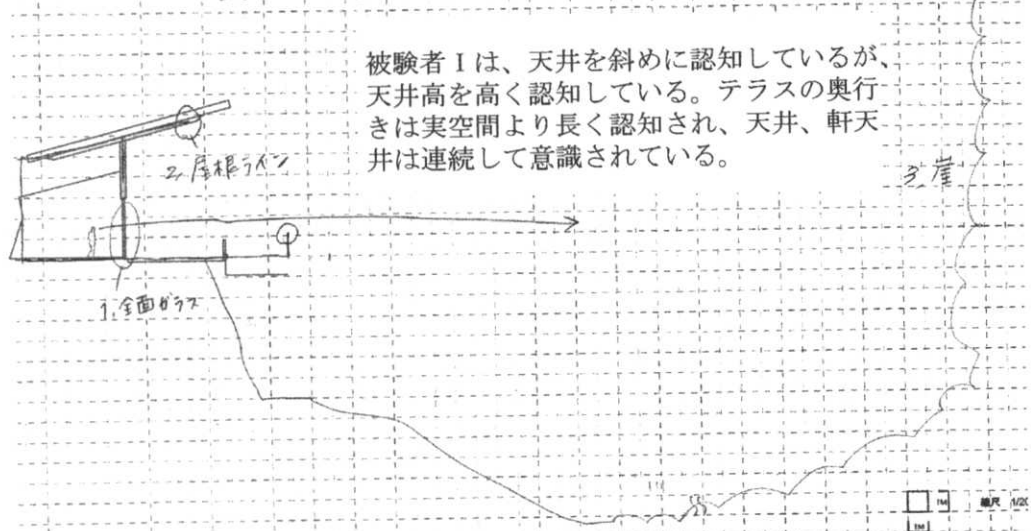 被験者Iは、天井を斜めに認知しているが、
天井高を高く認知している。テラスの奥行
きは実空間より長く認知され、天井、軒天
井は連続して意識されている。
2. 屋根ライン
3. 崖
1. 全面ガラス
1M 縮尺
1M